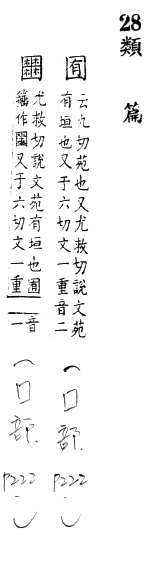 28類 篇
囿 云九切苑也又尤救切說文苑
有垣也又于六切文一重音二
(口部. P222)
𡈹 尤救切說文苑有垣也 音
籀作 又于六切文一重 一
(口部. P222)